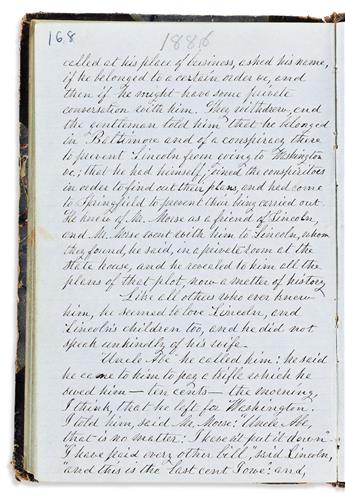 168
1886
called at his place of business, asked his name,
if he belonged to a certain order &c, and
then if he might have some private
conversation with him. They withdrew, and
the gentleman told him that he belonged
in Baltimore and of a conspiracy there
to prevent Lincoln from going to Washington
&c; that he had himself joined the conspirators
in order to find out their plans, and had come
to Springfield to prevent their being carried out.
He knew of Mr. Morse as a friend of Lincoln,
and Mr. Morse went with him to Lincoln, whom
they found, he said, in a private room at the
State house, and he revealed to him all the
plans of that plot, now a matter of history.
Like all others who ever knew
him, he seemed to love Lincoln, and
Lincoln's children too, and he did not
speak unkindly of his wife.
"Uncle Abe" he called him: he said
he came to him to pay a trifle which he
owed him — ten cents — the morning,
I think, that he left for Washington.
I told him, said Mr. Morse: "Uncle Abe,
that is no matter: I have nt put it down"
"I have paid every other bill, said Lincoln,
"and this is the last cent I owe": and,